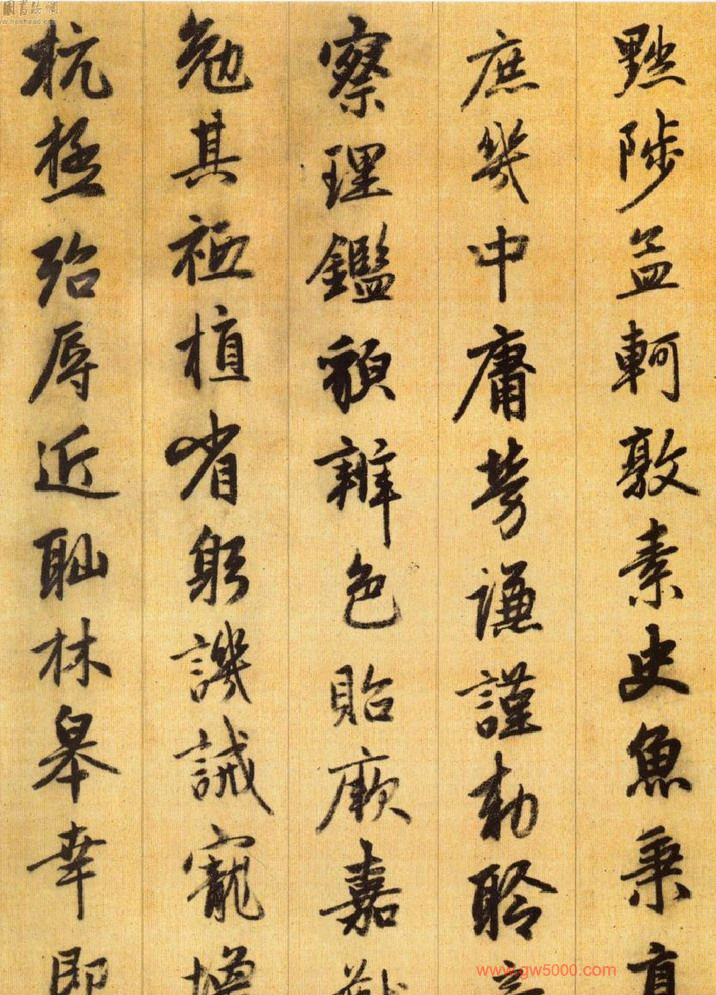 黜陟孟軻敦素史魚秉直
庶幾中庸勞謙謹勑聆音
察理鑑貌辨色貽厥嘉猷
勉其祗植省躬譏誡寵增
抗極殆辱近耻林皋幸即
www.gw5000.com